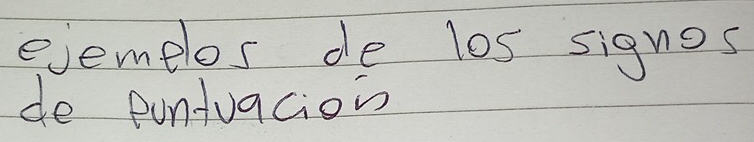 ejemplos de los signos
de puntuación